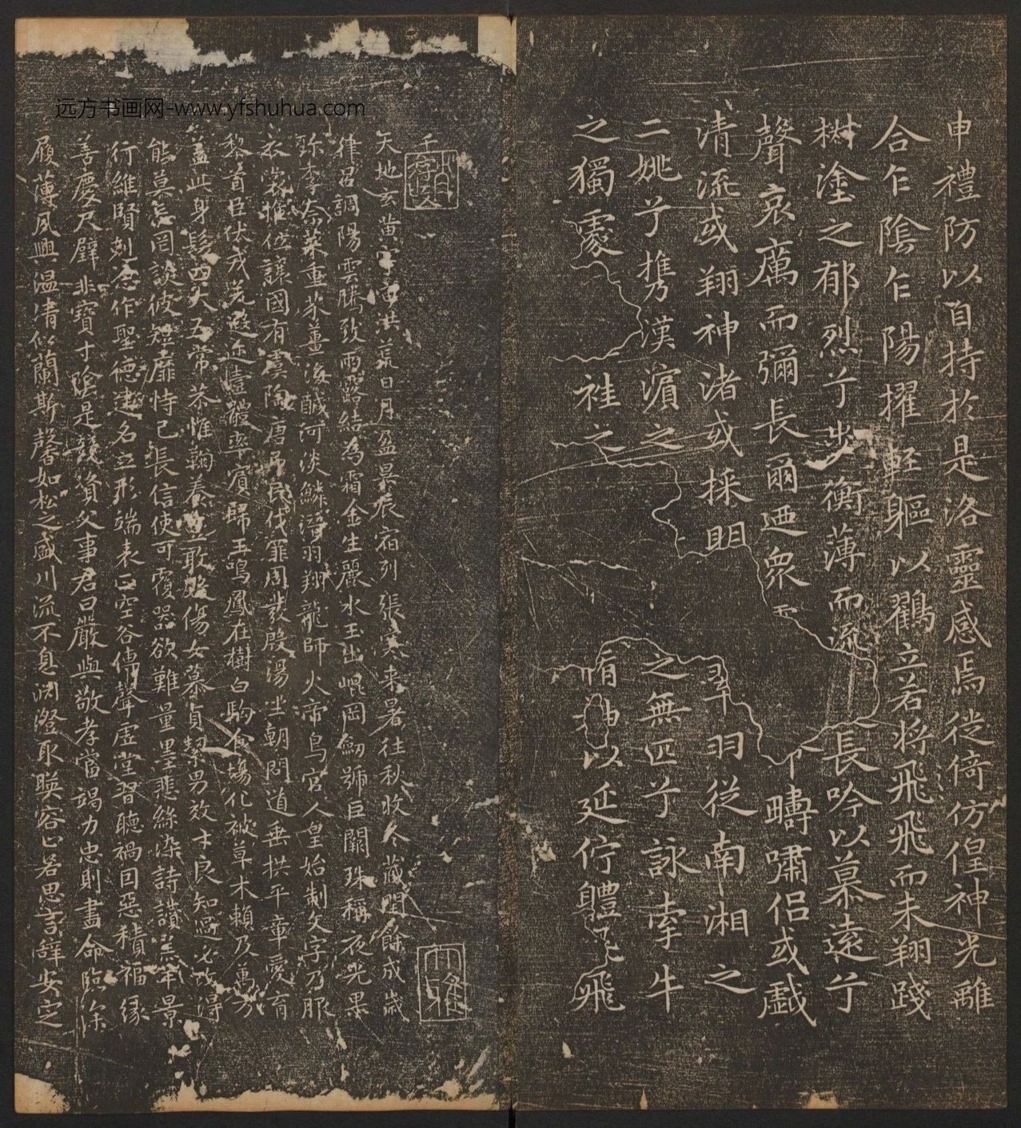 申禮防以自持於是洛靈感焉徙倚仿偟神光離
合乍陰乍陽擢輕軀以鸖立若將飛飛而未翔踐
椒塗之郁烈兮步衡薄而流 長吟以慕遠兮
聲哀厲而彌長爾迺眾 疇嘯侶或戲
清流或翔神渚或採明 翠羽從南湘之
二姚兮攜漢濱之 之無匹兮詠牽牛
之獨處 袿之 脩袖以延佇體 飛
千字文
天地玄黃宇宙洪荒日月盈昃辰宿列張寒来暑往秋收冬藏閏餘成歲
律呂調陽雲騰致雨露結為霜金生麗水玉出崐岡劒號巨闕珠稱夜光果
珍李柰菜重芥薑海醎河淡鱗潛羽翔龍師火帝鳥官人皇始制文字乃服
衣裳推位讓國有虞陶唐弔民伐罪周發殷湯坐朝問道垂拱平章愛育
黎首臣伏戎羌遐迩壹體率賓歸王鳴鳳在樹白駒食場化被草木賴及萬方
盖此身髮四大五常恭惟鞠養豈敢毀傷女慕貞潔男效才良知過必改得
能莫忘罔談彼短靡恃己長信使可覆器欲難量墨悲絲染詩讚羔羊景
行維賢剋念作聖德建名立形端表正空谷傳聲虛堂習聽禍因惡積福緣
善慶尺璧非寶寸陰是競資父事君曰嚴與敬孝當竭力忠則盡命臨深
履薄夙興溫凊似蘭斯馨如松之盛川流不息淵澄取暎容止若思言辭安定
远方书画网-www.yfshuhua.com